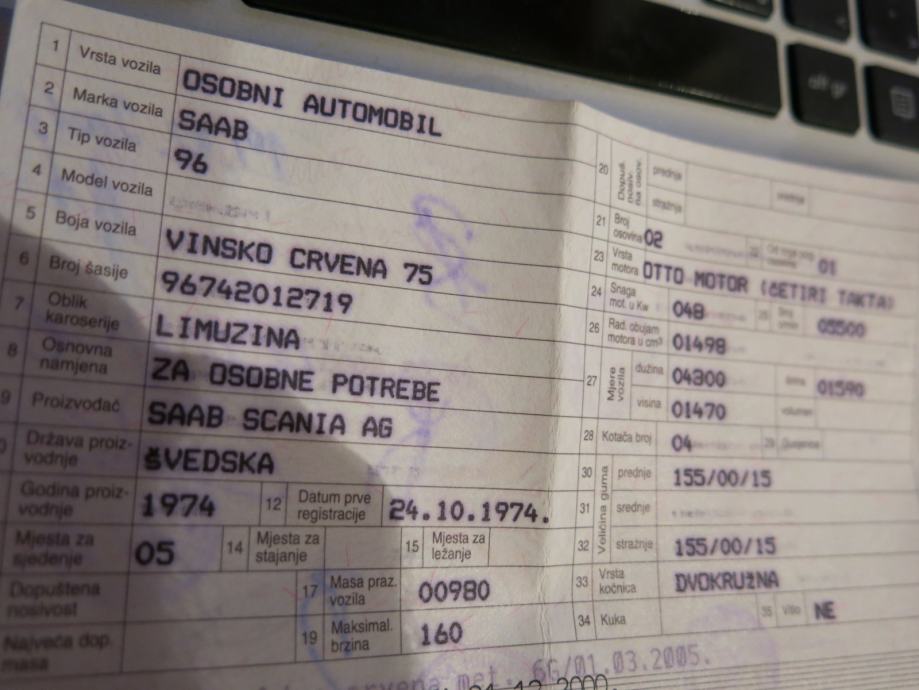 1 Vrsta vozila OSOBNI AUTOMOBIL
2 Marka vozila SAAB
3 Tip vozila 96
4 Model vozila
5 Boja vozila VINSKO CRVENA 75
6 Broj šasije 96742012719
7 Oblik karoserije LIMUZINA
8 Osnovna namjena ZA OSOBNE POTREBE
9 Proizvođač SAAB SCANIA AG
0 Država proiz-vodnje ŠVEDSKA
Godina proiz-vodnje 1974 12 Datum prve registracije 24.10.1974.
Mjesta za sjedenje 05 14 Mjesta za stajanje 15 Mjesta za ležanje
Dopuštena nosivost 17 Masa praz. vozila 00980
Najveća dop. masa 19 Maksimal. brzina 160
20 Dopuš. nosiv. na osov. prednja
stražnja
21 Broj osovina 02 01
23 Vrsta motora OTTO MOTOR (ČETIRI TAKTA)
24 Snaga mot. u Kw 048 25 05500
26 Rad. obujam motora u cm³ 01498
27 Mjere vozila dužina 04300 širina 01590
visina 01470 volumen
28 Kotača broj 04 29
30 Veličina guma prednje 155/00/15
31 srednje
32 stražnje 155/00/15
33 Vrsta kočnica DVOKRUŽNA
34 Kuka 35 Vitlo NE
met. 6G/01.03.2005.
alt gr